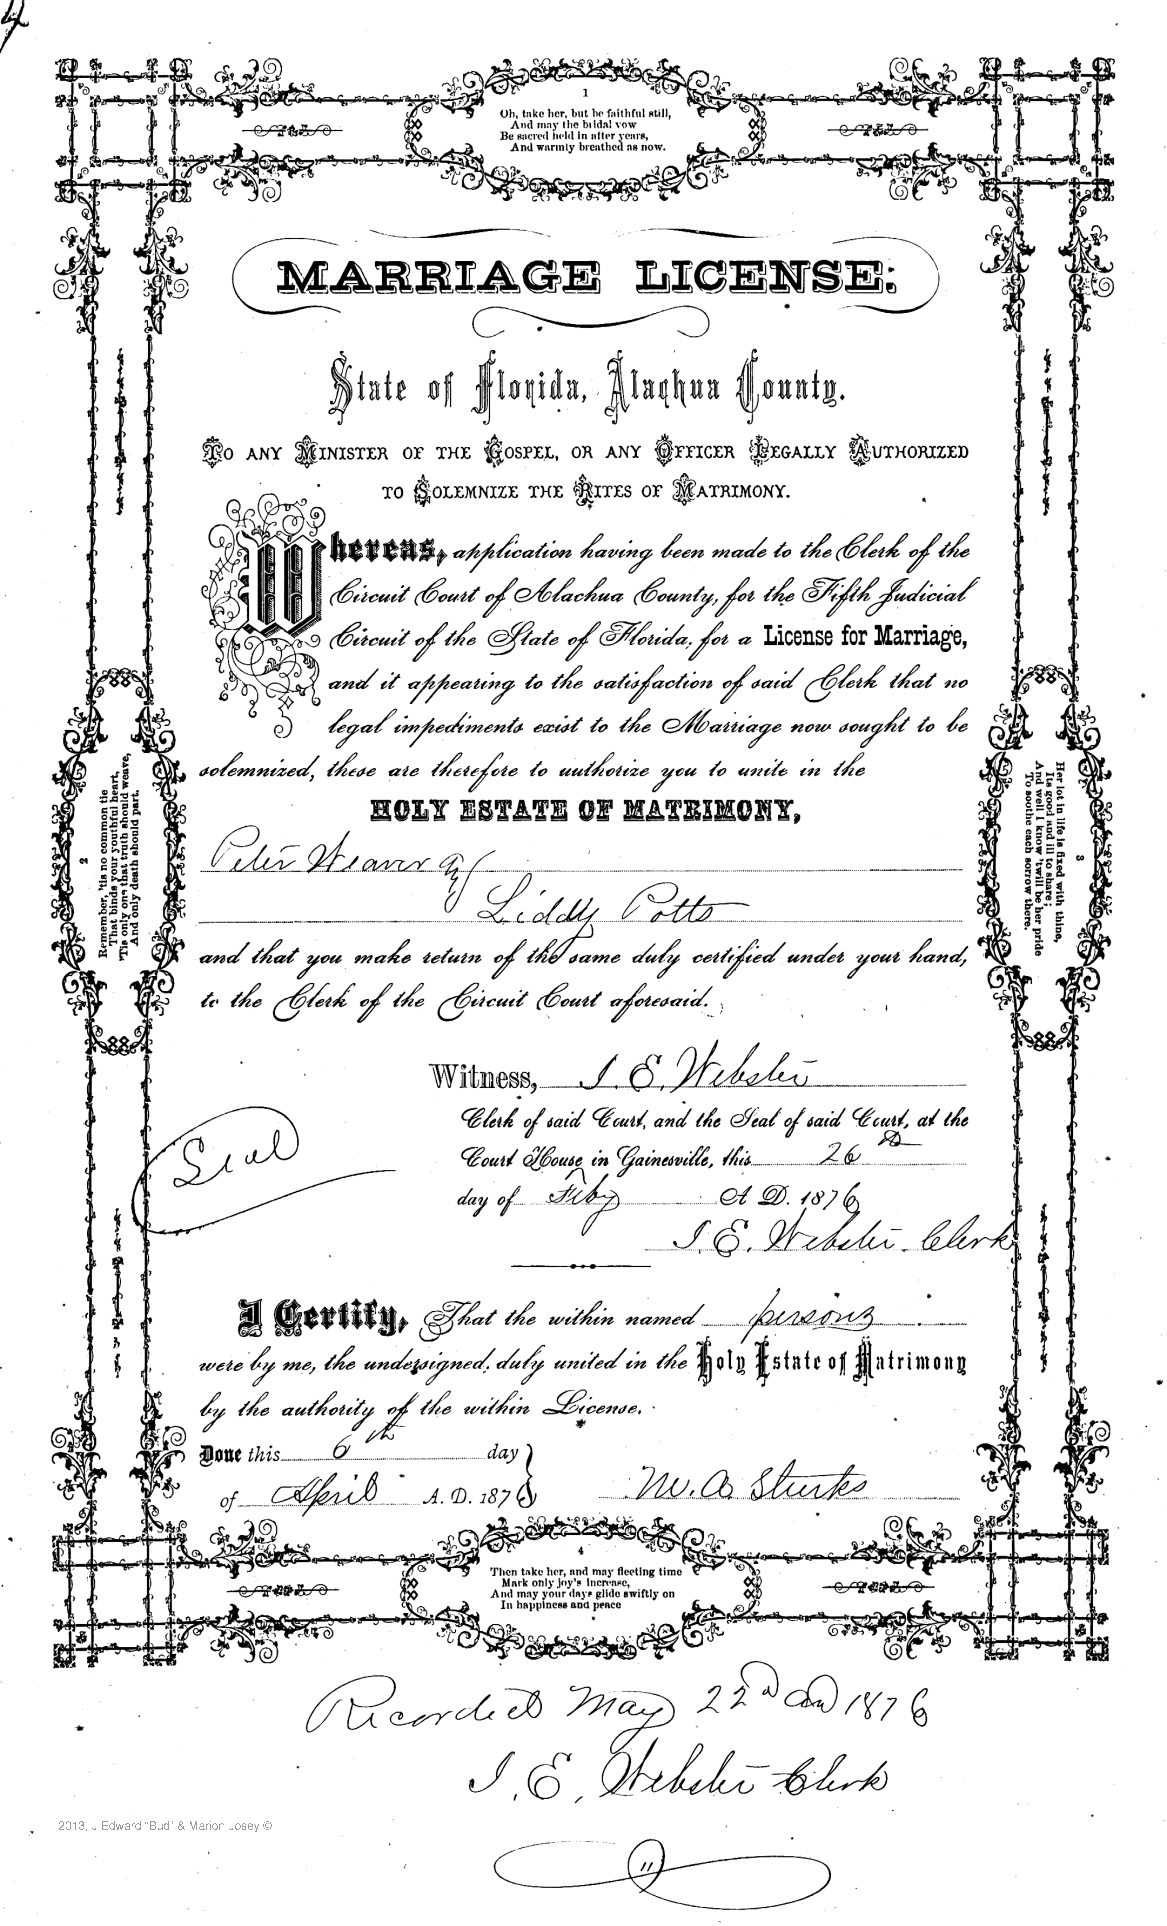 1
Oh, take her, but be faithful still,
And may the bridal vow
Be sacred held in after years,
And warmly breathed as now.
MARRIAGE LICENSE:
State of Florida, Alachua County.
TO ANY MINISTER OF THE GOSPEL, OR ANY OFFICER LEGALLY AUTHORIZED
TO SOLEMNIZE THE RITES OF MATRIMONY.
Whereas, application having been made to the Clerk of the
Circuit Court of Alachua County, for the Fifth Judicial
Circuit of the State of Florida, for a License for Marriage,
and it appearing to the satisfaction of said Clerk that no
legal impediments exist to the Marriage now sought to be
solemnized, these are therefore to authorize you to unite in the
HOLY ESTATE OF MATRIMONY,
Peter Weaver &
Liddy Potts
and that you make return of the same duly certified under your hand,
to the Clerk of the Circuit Court aforesaid.
2
Remember, 'tis no common tie
That binds your youthful heart,
'Tis only one that truth should weave,
And only death should part.
3
Her lot in life is fixed with thine,
Its good and ill to share;
And well I know 'twill be her pride
To soothe each sorrow there.
Witness, I. E. Webster
Clerk of said Court, and the Seal of said Court, at the
Seal
Court House in Gainesville, this 26
day of Feby A. D. 1876
I. E. Webster Clerk
I Certify, That the within named persons
were by me, the undersigned, duly united in the Holy Estate of Matrimony
by the authority of the within License.
Done this 6th day
of April A. D. 1876
M. A. Sturks
4
Then take her, and may fleeting time
Mark only joy's increase,
And may your days glide swiftly on
In happiness and peace
Recorded May 22d AD 1876
I. E. Webster Clerk
2013, J Edward "Bud" & Marion Josey ©
11